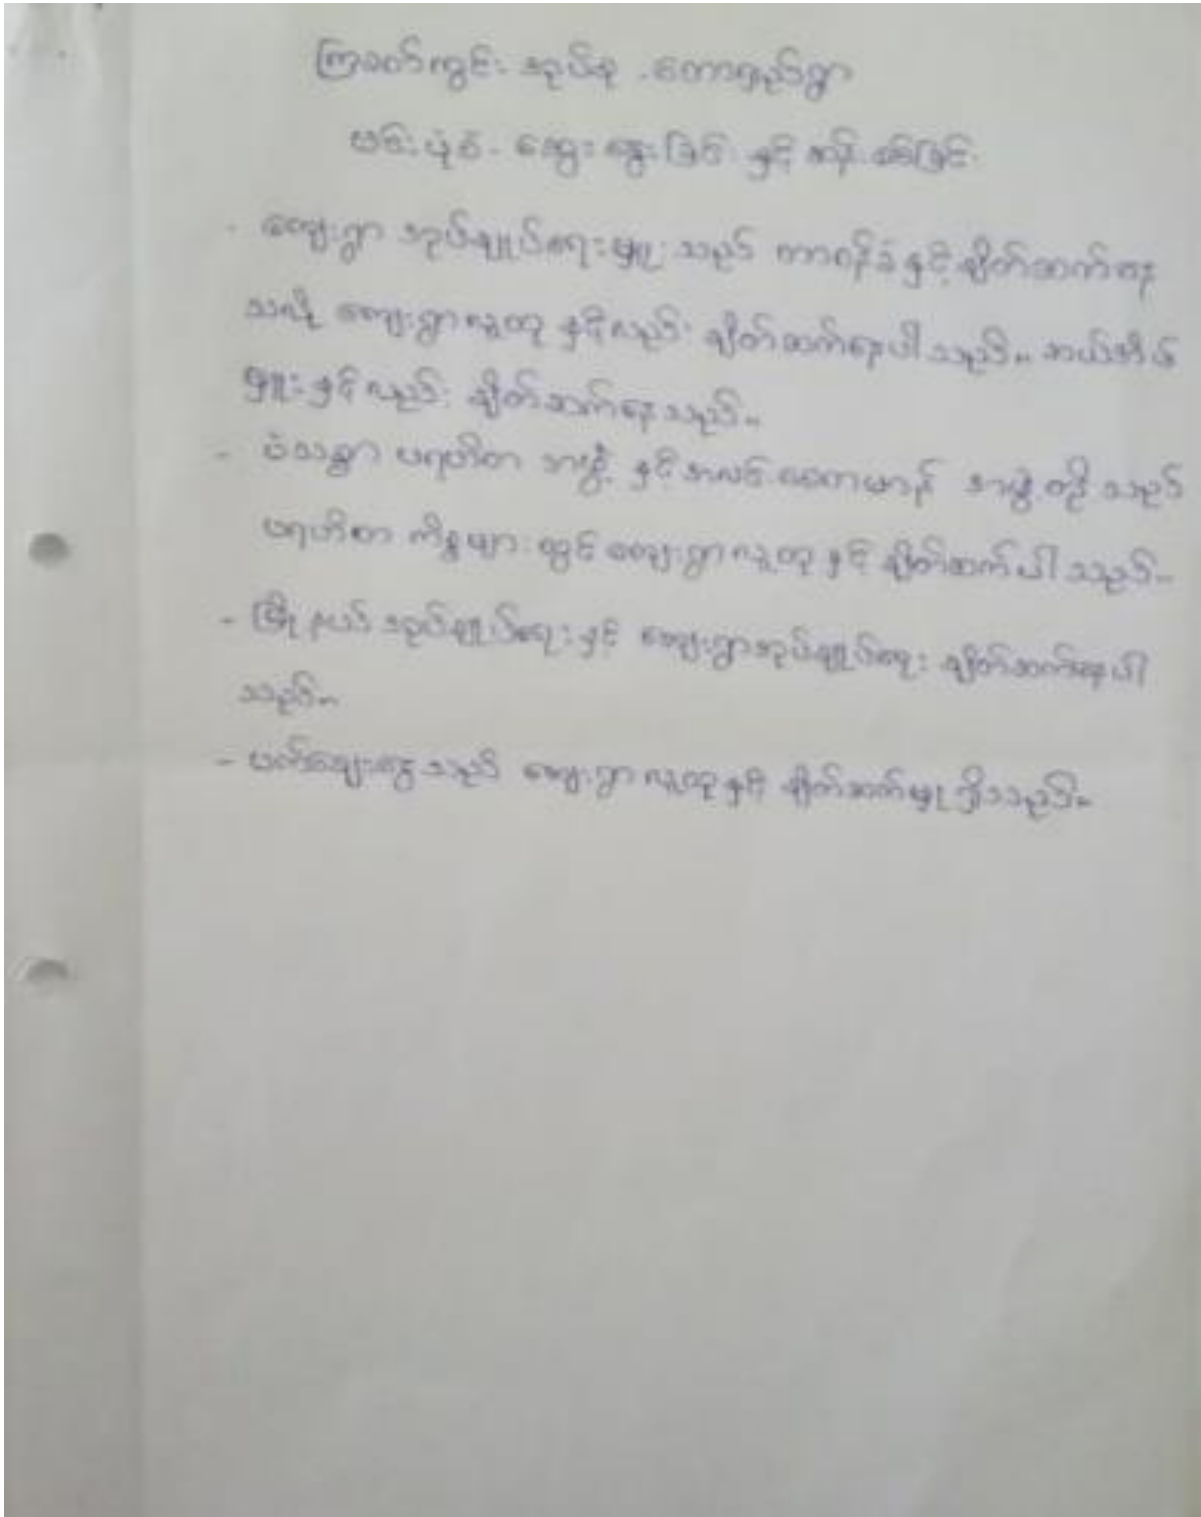 ကြခတ်ကွင်း အုပ်စု . တောရှည်ရွာ
ဗင်းပုံစံ - ဆွေးနွေးခြင်း နှင့် ဆန်းစစ်ခြင်း
- ကျေးရွာ အုပ်ချုပ်ရေးမှူး သည် တာဝန်ခံ နှင့် ချိတ်ဆက်နေ
သလို ကျေးရွာလူထု နှင့်လည်း ချိတ်ဆက်နေပါသည်။ ဆယ်အိမ်
မှူး နှင့်လည်း ချိတ်ဆက်နေသည်။
- ပရဟိတ အဖွဲ့ နှင့် အလင်း အဖွဲ့ တို့ သည်
ပရဟိတ ကိစ္စများ တွင် ကျေးရွာလူထု နှင့် ချိတ်ဆက်ပါသည်။
- မြို့နယ် အုပ်ချုပ်ရေး နှင့် ကျေးရွာအုပ်ချုပ်ရေး ချိတ်ဆက်နေပါ
သည်။
- မတ်ချေးငွေ သည် ကျေးရွာ လူထု နှင့် ချိတ်ဆက်မှု ရှိသည်။